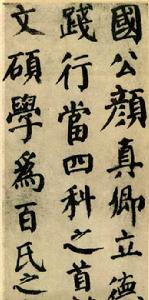 國公顔真卿立德
踐行當四科之首
文碩學爲百氏之